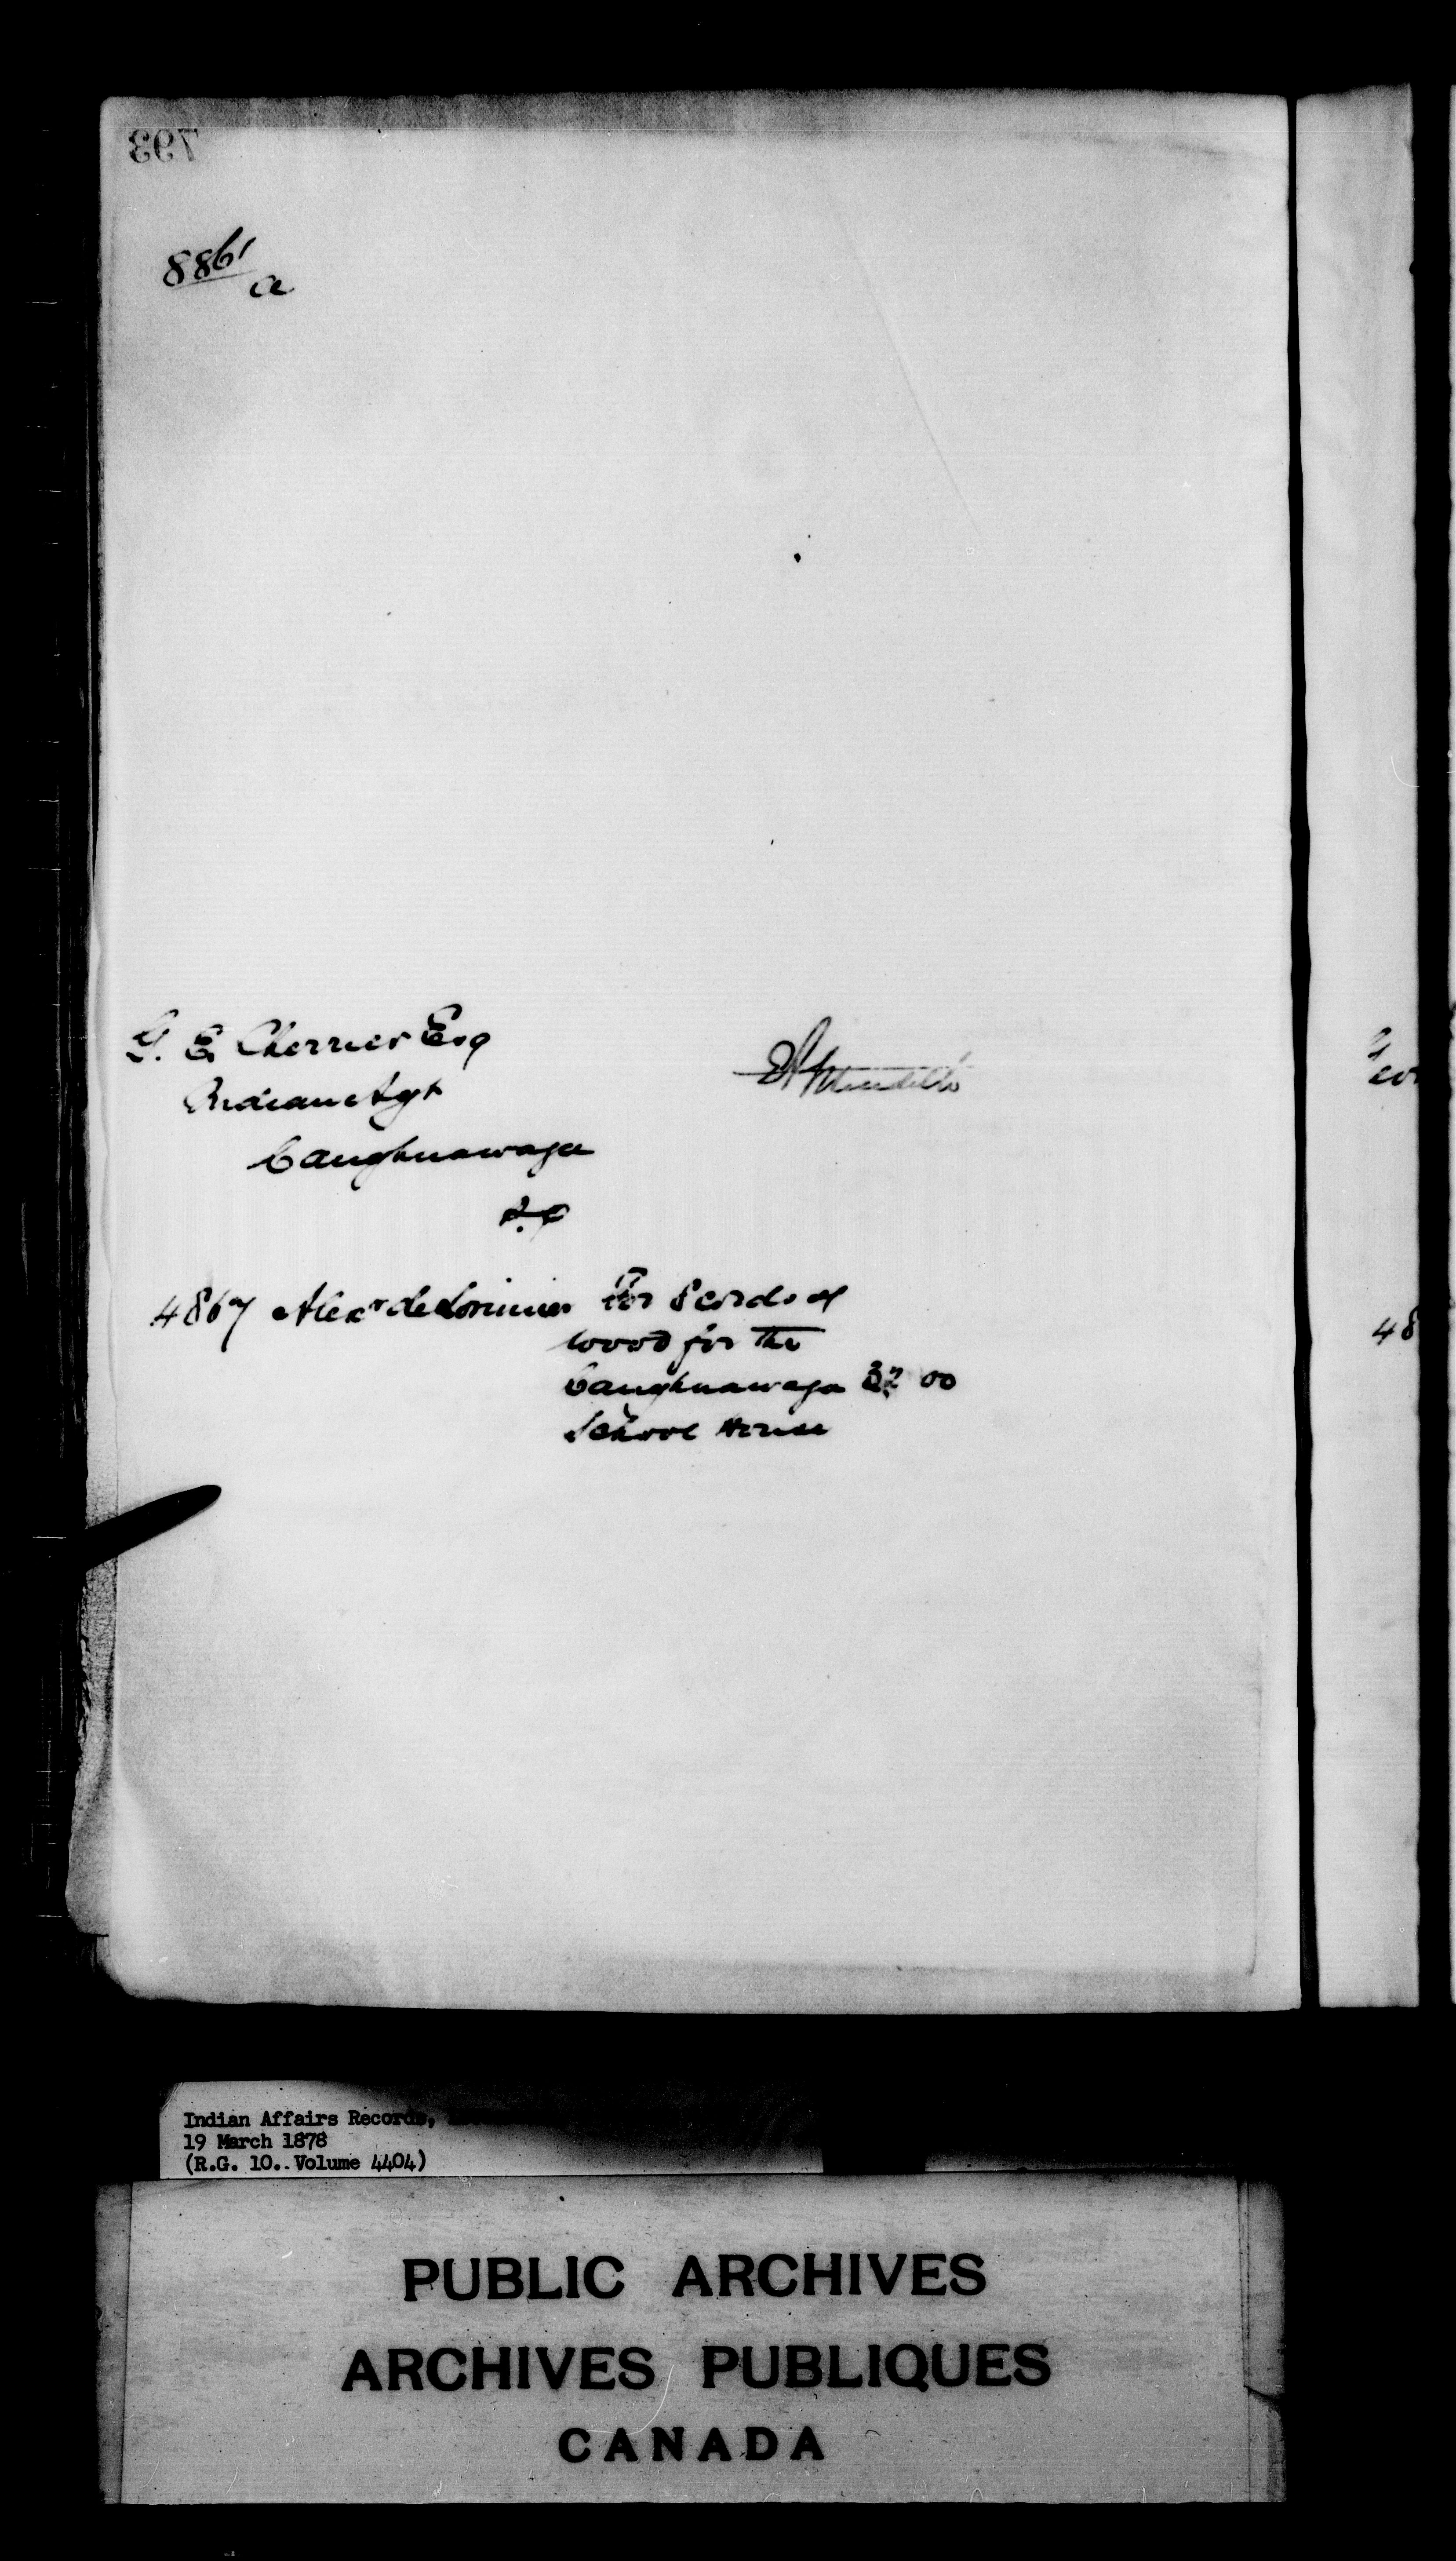 793
8861
a
G. E. Cherrier Esq
Indian Agt
Caughnawaga
P.Q
4867 Alexr de Lorimier For 8 cords of
wood for the
Caughnawaga 32 00
School House
48
Indian Affairs Records,
19 March 1878
(R.G. 10.. Volume 4404)
PUBLIC ARCHIVES
ARCHIVES PUBLIQUES
CANADA